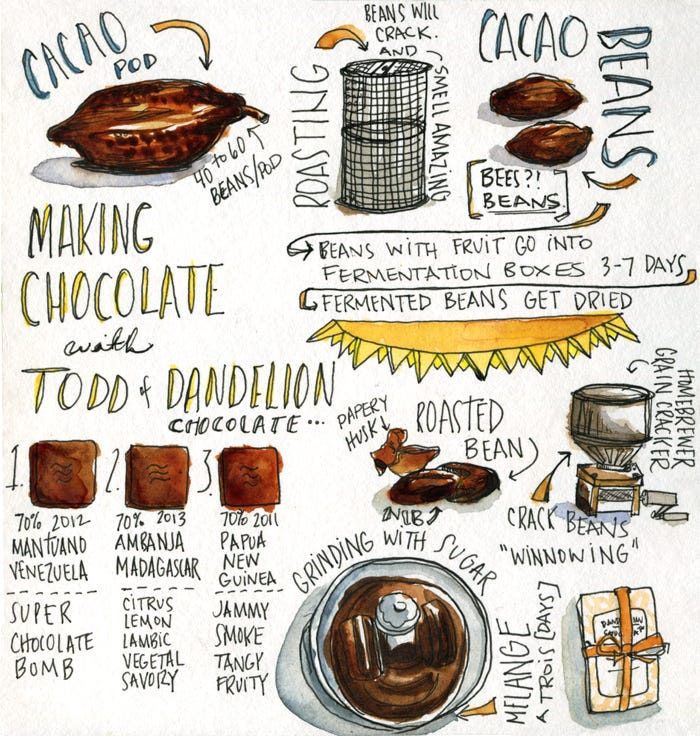 CACAO
POD
40 to 60
BEANS/POD
ROASTING
BEANS WILL
CRACK.
AND
SMELL AMAZING
CACAO
BEANS
BEES?!
BEANS.
MAKING
CHOCOLATE
with
TODD & DANDELION
CHOCOLATE...
BEANS WITH FRUIT GO INTO
FERMENTATION BOXES 3-7 DAYS
FERMENTED BEANS GET DRIED
PAPERY
HUSK
ROASTED
BEAN
NIB
HOMEBREWER
GRAIN CRACKER
CRACK BEANS
"WINNOWING"
1.
70% 2012
MANTUANO
VENEZUELA
SUPER
CHOCOLATE
BOMB
2.
70% 2013
AMBANJA
MADAGASCAR
CITRUS
LEMON
LAMBIC
VEGETAL
SAVORY
3.
70% 2011
PAPUA
NEW
GUINEA
JAMMY
SMOKE
TANGY
FRUITY
GRINDING WITH SUGAR
MELANGE
A TROIS [DAYS]